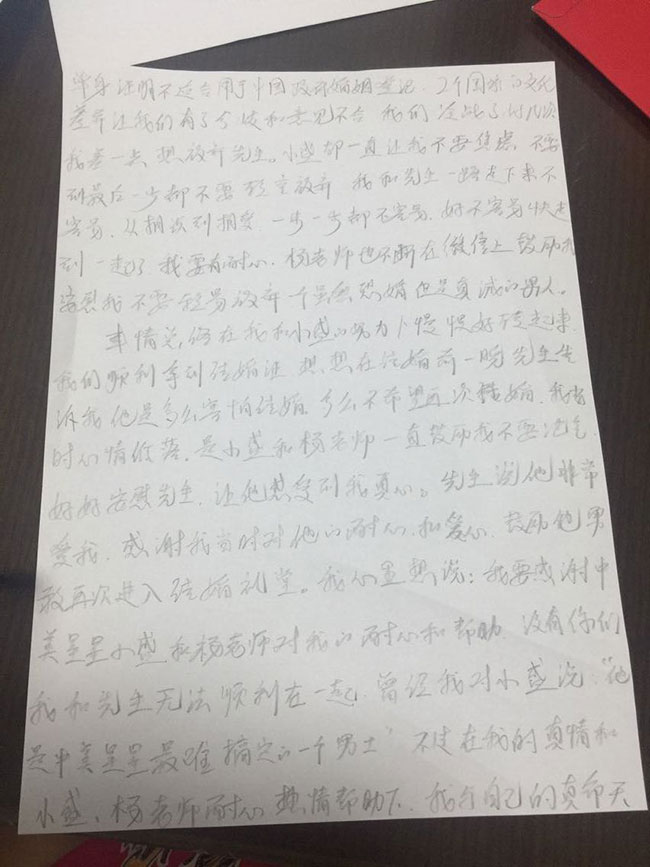 单身证明不适合用于中国政府婚姻登记．2个国家的文化
差异让我们有了分歧和意见不合 我们冷战了好几次
我差一点想放弃先生。小盛却一直让我不要焦虑 不要
到最后一步都不要轻言放弃 我和先生一路走下来不
容易．从相识到相爱 一步一步都不容易．好不容易快走
到一起了 我要有耐心．杨老师也不断在微信上鼓励我
安慰我不要轻易放弃一个虽然恐婚但是真诚的男人。
事情总算在我和小盛的努力下慢慢好转起来．
我们顺利拿到结婚证 想想在结婚前一晚先生告
诉我他是多么害怕结婚．多么不希望再次结婚．我当
时心情低落．是小盛和杨老师一直鼓励我不要泄气．
好好安慰先生．让他感受到我真心。先生说他非常
爱我．感谢我当时对他的耐心和爱心．鼓励他勇
敢再次进入结婚礼堂。我心里想说：我要感谢中
美星星小盛和杨老师对我的耐心和帮助．没有你们
我和先生无法顺利在一起．曾经我对小盛说．“他
是中美星星最难搞定的一个男士” 不过在我的真情和
小盛、杨老师耐心热情帮助下．我与自己的真命天